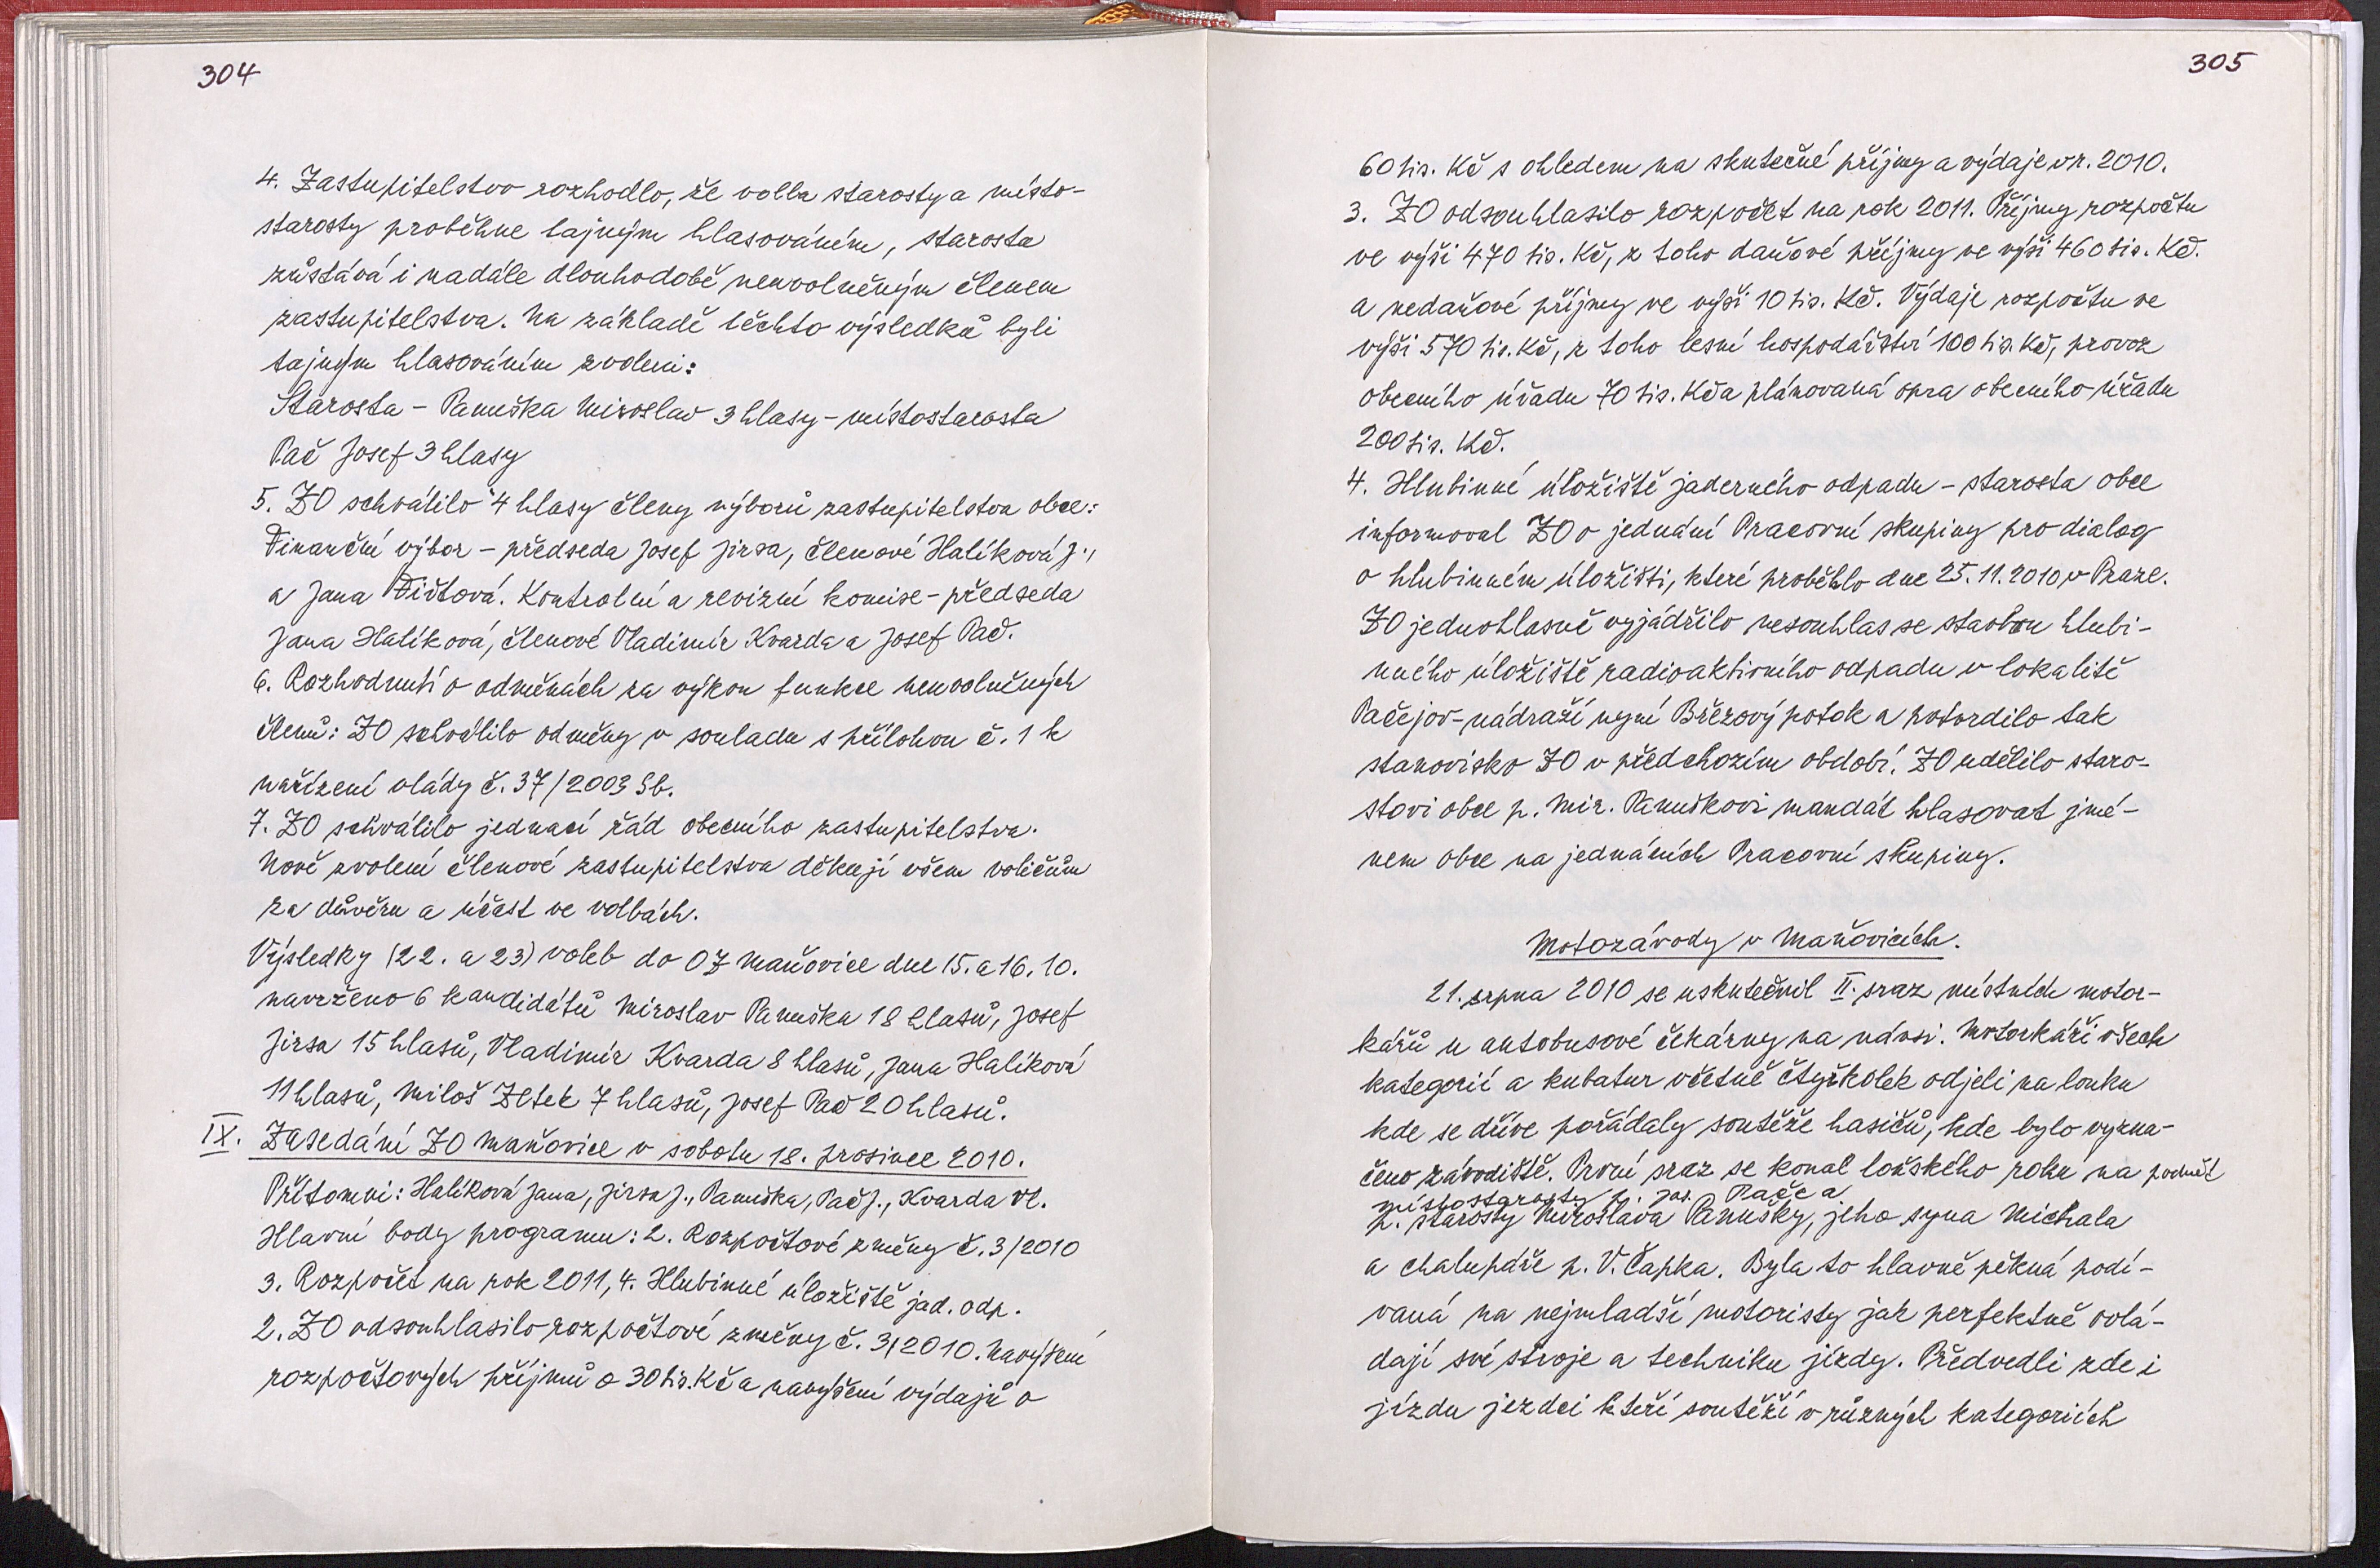 304
4. Zastupitelstvo rozhodlo, že volba starosty a místo-
starosty proběhne tajným hlasováním, starosta
zůstává i nadále dlouhodobě neuvolněným členem
zastupitelstva. Na základě těchto výsledků byli
tajným hlasováním zvoleni:
Starosta - Panuška Miroslav 3 hlasy - místostarosta
Pač Josef 3 hlasy
5. ZO schválilo 4 hlasy členy výborů zastupitelstva obce:
Finanční výbor - předseda Josef Jirsa, členové Halíková J.,
a Jana Fištová. Kontrolní a revizní komise - předseda
Jana Halíková, členové Vladimír Kvarda a Josef Pač.
6. Rozhodnutí o odměnách za výkon funkce neuvolněných
členů: ZO schválilo odměny v souladu s přílohou č. 1 k
nařízení vlády č. 37/2003 Sb.
7. ZO schválilo jednací řád obecního zastupitelstva.
Nově zvolení členové zastupitelstva děkují všem voličům
za důvěru a účast ve volbách.
Výsledky (22. a 23) voleb do OZ Maňovice dne 15. a 16. 10.
navrženo 6 kandidátů Miroslav Panuška 18 hlasů, Josef
Jirsa 15 hlasů, Vladimír Kvarda 8 hlasů, Jana Halíková
11 hlasů, Miloš Zetek 7 hlasů, Josef Pač 20 hlasů.
IX. Zasedání ZO Maňovice v sobotu 18. prosince 2010.
Přítomni: Halíková Jana, Jirsa J., Panuška, Pač J., Kvarda Vl.
Hlavní body programu: 2. Rozpočtové změny č. 3/2010
3. Rozpočet na rok 2011, 4. Hlubinné úložiště jad. odp.
2. ZO odsouhlasilo rozpočtové změny č. 3/2010. Navýšení
rozpočtových příjmů o 30 tis. Kč a navýšení výdajů o
305
60 tis. Kč s ohledem na skutečné příjmy a výdaje v r. 2010.
3. ZO odsouhlasilo rozpočet na rok 2011. Příjmy rozpočtu
ve výši 470 tis. Kč, z toho daňové příjmy ve výši 460 tis. Kč.
a nedaňové příjmy ve výši 10 tis. Kč. Výdaje rozpočtu ve
výši 570 tis. Kč, z toho lesní hospodářství 100 tis. Kč, provoz
obecního úřadu 70 tis. Kč a plánovaná opra obecního úřadu
200 tis. Kč.
4. Hlubinné úložiště jaderného odpadu - starosta obce
informoval ZO o jednání Pracovní skupiny pro dialog
o hlubinném úložišti, které proběhlo dne 25. 11. 2010 v Praze.
ZO jednohlasně vyjádřilo nesouhlas se stavbou hlubi-
nného úložiště radioaktivního odpadu v lokalitě
Pačejov-nádraží nyní Březový potok a potvrdilo tak
stanovisko ZO v předchozím období. ZO udělilo staro-
stovi obce p. Mir. Panuškovi mandát hlasovat jmé-
nem obce na jednáních Pracovní skupiny.
Motozávody v Maňovicích.
21. srpna 2010 se uskutečnil II. sraz místních motor-
kářů u autobusové čekárny na návsi. Motorkáři všech
kategorií a kubatur včetně čtyřkolek odjeli na louku
kde se dříve pořádaly soutěže hasičů, kde bylo vyzna-
čeno závodiště. První sraz se konal loňského roku na podnět
místostarosty p. Jos. Pače a
p. starosty Miroslava Panušky, jeho syna Michala
a chalupáře p. V. Čapka. Byla to hlavně pěkná podí-
vaná na nejmladší motoristy jak perfektně ovlá-
dají své stroje a techniku jízdy. Předvedli zde i
jízdu jezdci kteří soutěží v různých kategoriích